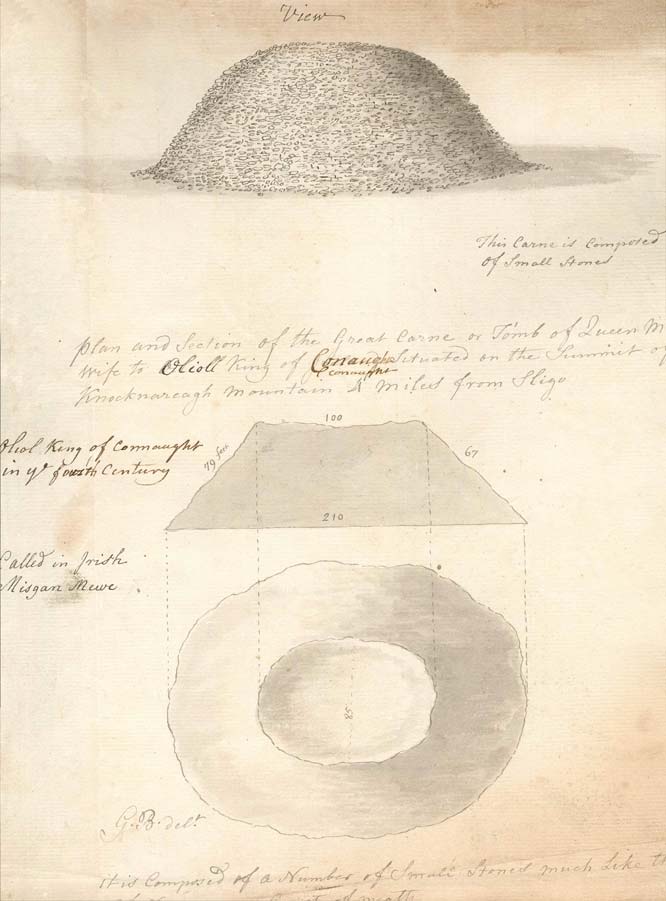 View
This Carne is Composed
of Small Stones
plan and Section of the Great Carne or Tomb of Queen M
wife to Olioll King of Conaught Situated on the Summit of
connaught
Knocknareagh Mountain 4 Miles from Sligo
100
Oliol King of Connaught
in yᵉ fourth Century
79 feet
67
210
Called in Irish
Misgan Mewe
58
G.B. delᵗ
it is Composed of a Number of Small Stones much Like th
of meath